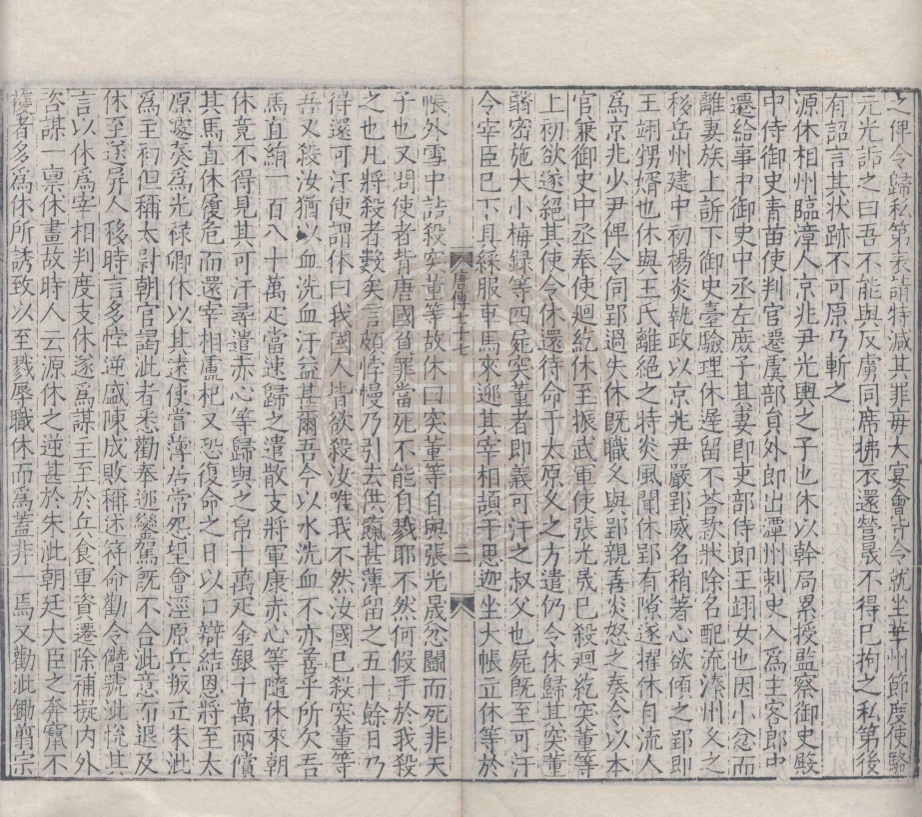 之俾令歸私第未詣特減其罪毎大宴會皆令就坐華州節度使駱
元光詬之曰吾不能與反虜同席拂衣還營晟不得已拘之私第後
有詔言其狀跡不可原乃斬之
源休相州臨漳人京兆尹光輿之子也休以幹局累授監察御史殿
中侍御史青苗使判官遷虞部貟外郎出潭州刺史入爲主客郎中
遷給事中御史中丞左庻子其妻即吏部侍郎王翊女也因小忿而
離妻族上訴下御史臺驗理休遲留不荅款狀除名配流溱州乆之
移岳州建中初楊炎執政以京兆尹嚴郢威名稍著心欲傾之郢即
王翊甥婿也休與王氏離絶之特炎風聞休郢有隙遂擢休自流人
爲京兆少尹俾令伺郢過失休旣職乆與郢親善炎怒之奏令以本
官兼御史中丞奉使迴紇休至振武軍使張光晟巳殺迴紇突董等
上初欲遂絶其使令休還待命于太原乆之方遣仍令休歸其突董
翳密施大小梅録等四屍突董者即義可汗之叔父也屍旣至可汗
令宰臣巳下具綵服車馬來迎其宰相頡干思迦坐大帳立休等於
帳外雪中詰殺突董等故休曰突董等自與張光晟忿鬬而死非天
子也又問使者背唐國負罪當死不能自戮耶不然何假手於我殺
之也凡將殺者數矣言頗悖慢乃引去供餼甚薄留之五十餘日乃
得還可汗使謂休曰我國人皆欲殺汝唯我不然汝國巳殺突董等
吾又殺汝猶以血洗血汙益甚爾吾今以水洗血不亦善乎所欠吾
馬直絹一百八十萬疋當速歸之遣散支將軍康赤心等隨休來朝
休竟不得見其可汗尋遣赤心等歸與之帛十萬疋金銀十萬兩償
其馬直休履危而還宰相盧杞又恐復命之日以口辯結恩將至太
原遽奏爲光禄卿休以其遠使賞薄居常怨望會涇原兵叛立朱泚
爲主初但稱太尉朝官謁泚者悉勸奉迎鑾駕旣不合泚意而退及
休至遂屏人移時言多悖逆盛陳成敗稱述符命勸令僭號泚悅其
言以休爲宰相判度支休遂爲謀主至於兵食軍資遷除補擬內外
咨謀一禀休畫故時人云源休之逆甚於朱泚朝廷大臣之奔竄不
穫者多爲休所誘致以至戮辱職休而爲蓋非一焉又勸泚鋤翦宗
唐傳七十七
二